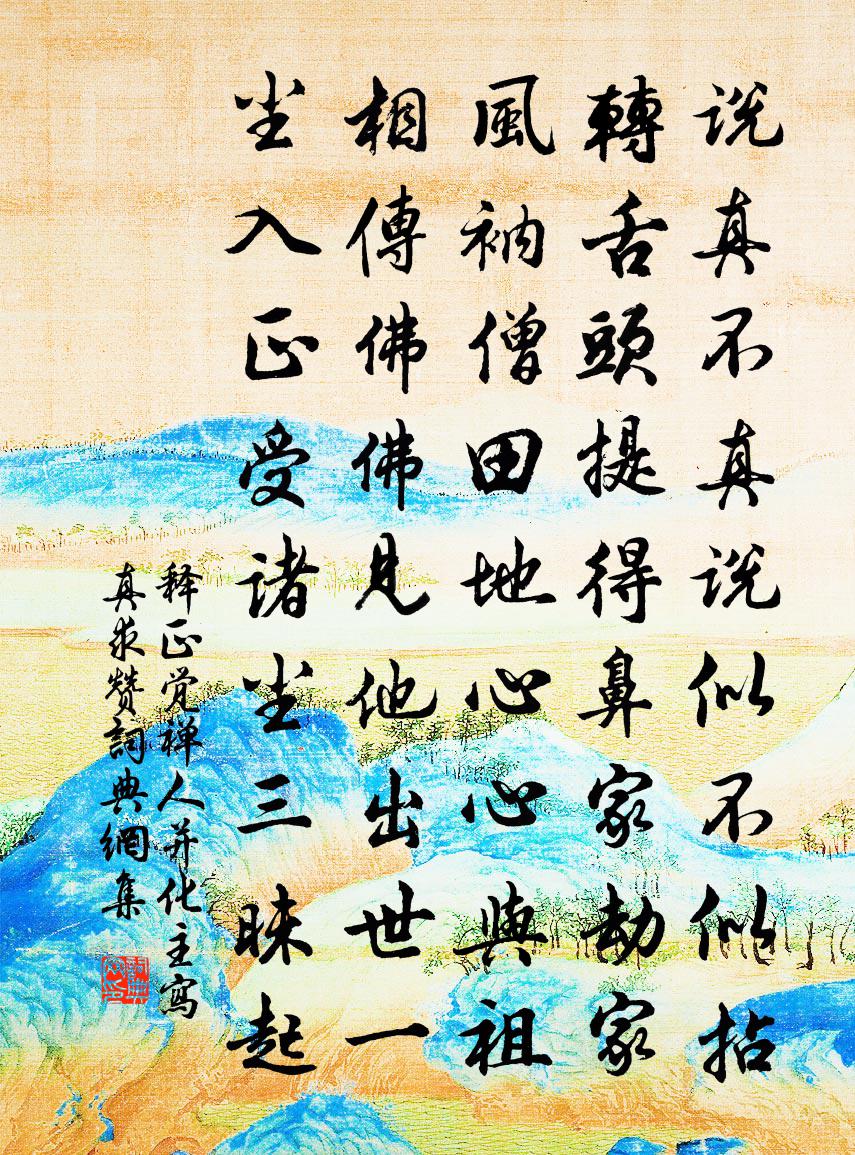 说真不真说似不似拈
轉舌頭提得鼻家劫家
風衲僧田地心心與祖
相傳佛佛見他出世一
尘入正受诸尘三昧起
释正觉禅人并化主寫
真求赞詞典網集